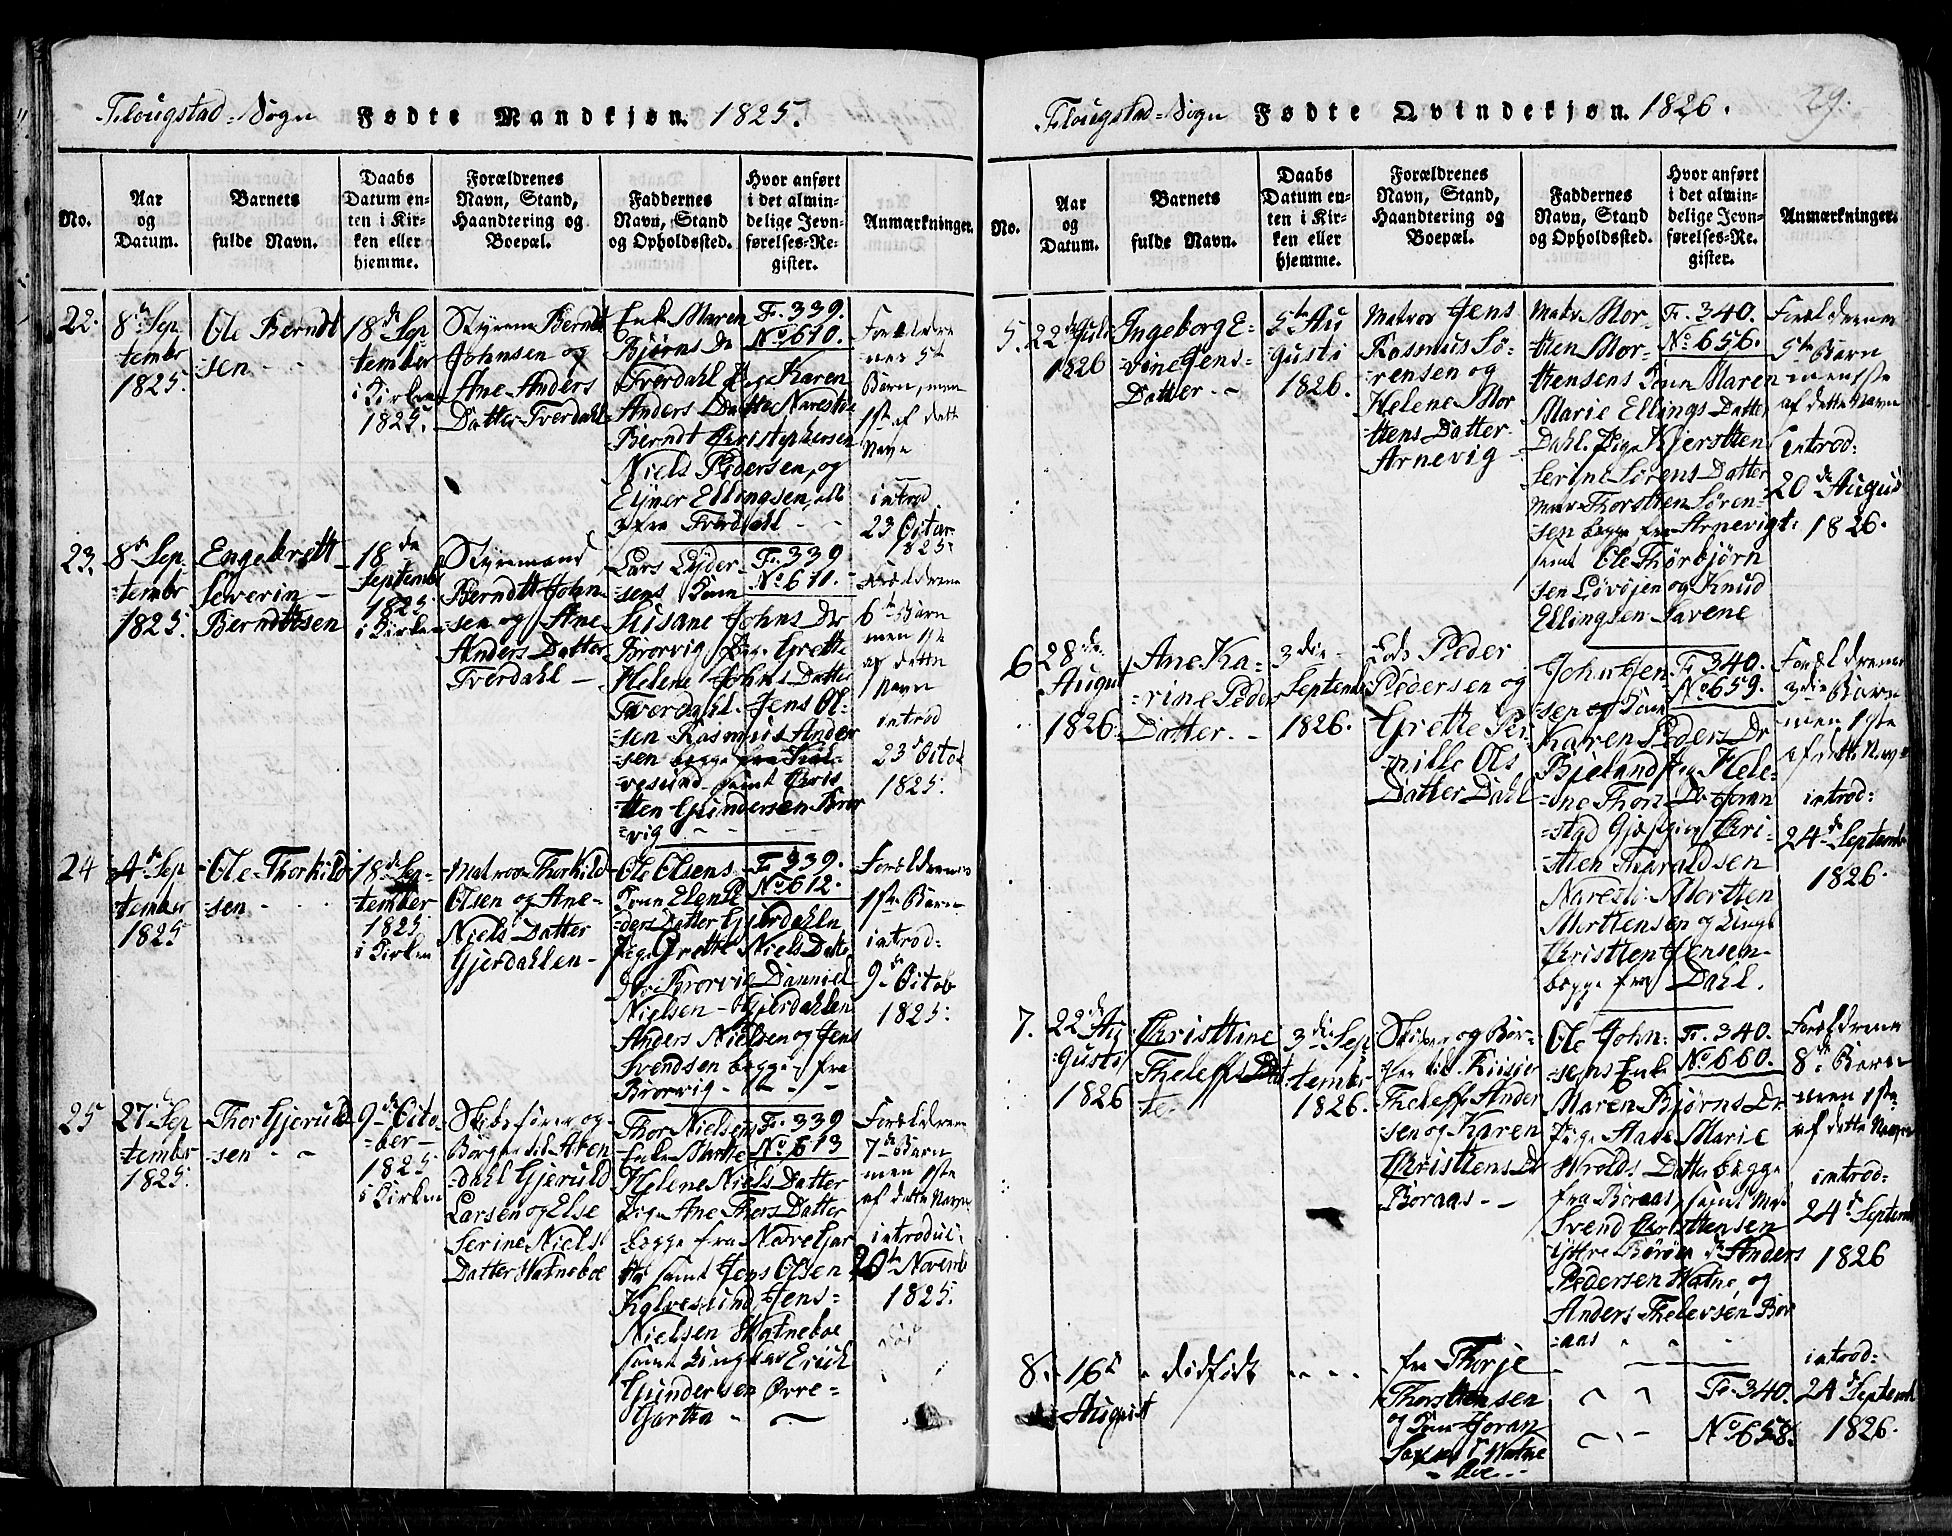 Flougstad=Sogn Fødte Mandkjøn. 1825.
No.
Aar
og
Datum.
Barnets
fulde Navn.
Daabs
Datum en-
ten i Kir-
ken eller
hjemme.
Forældrenes
Navn, Stand,
Haandtering og
Boepæl.
Faddernes
Navn, Stand
og Opholdssted.
Hvor anført
i det almin-
delige Jevn-
førelses-Re-
gister.
Anmærkninger.
22.
8de Sep
tembr
1825.
Ole Berndt
sen
18de Sep
tember
i Kirken
1825.
Styrm Berndt
Johnsen og
Ane Anders
Datter Tverdahl
Enke Maren
Bjørns Dr
Tverdahl Pige Karen
Anders Datter Naresti
Berndt Christophersen
Niels Pedersen, og
Ejner Ellingsen, alle
fra Tverdahl
F. 339.
No 610.
Forældrene
Barn, men
1ste af dette
Navn
introd
23 Octor
1825.
23.
8de Sep-
tembr
1825.
Engebrett
Severin
Berndtsen
18de
Septembr
1825
i Kirken
Styrmand
Berndt John
sen og Ane
Anders Datter
Tverdahl
Lars Lyder-
sens Kone
Susane Johns Dr
Brorvig Pige Grette
Helene Johns Datter
Tverdahl. Jens Ol-
sen Rasmus Ander
sen begge fra Kal-
vesund samt Chris
tten Gundersen Bror
vig
F. 339
No 611.
Forældrenes
6te Barn
men 1ste
af dette
Navn
introd
23de Octob
1825.
24
4de Sep
tember
1825
Ole Thorkild
sen
18de Sep-
tember
1825
i Kirken
Matros Thorkild
Olsen og Ane
Niels Datter
Gjerdahlen
Ole Olsens
Kone Elen Pe
ders Datter Gjerdahln
Pige Grette Niels Datte
Brorvig Danniel
Nielsen Gjerdahlen
Anders Nielsen og Jens
Svendsen begge fra
Brorvig
F. 339.
No 612.
Forældrenes
1ste Barn
introd:
9de Octob
1825.
25
27de Sep
tembr
1825.
Thor Gjeruld
sen
9de Octo
ber
1825
i Kirken
Skibsfører og
Borger til Aren
dahl Gjeruld
Larsen og Else
Serine Niels
Datter Watneboe
Thor Nielsens
Enke Marthe
Helene Niels Datter
Pige Ane Thors Datter
begge fra Nedre Gjar
tta samt Jens Olsen
Kalvesund Jens
Nielsen Watneboe
samt Ungkar Erich
Gundersen Øvre-
Gartta
F. 339
No 613
Forældrene
7de Barn
men 1ste
af dette Navn
introdu-
20de Novemb
1825.
Flougstad=Sogn Fødte Qvindekjøn. 1826. 29.
No.
Aar
og
Datum.
Barnets
fulde Navn.
Daabs
Datum en-
ten i Kir-
ken eller
hjemme.
Forældrenes
Navn, Stand,
Haandtering og
Boepæl.
Faddernes
Navn, Stand
og Opholdssted.
Hvor anført
i det almin-
delige Jevn-
førelses-Re-
gister.
Anmærkninger.
5.
22de Juli
1826
Ingeborg E-
vine Jens-
Datter
5te Au
gusti
1826.
Matros Jens
Rasmus Sø-
rensen og
Helene Mor
ttens Datter
Arnevig
Matr. Mor-
tten Mor-
ttensens Kone Maren
Marie Ellings Datter
Dahl. Pige Kjerstten
Serine Sørens Datter
Matr Thorstten Søren-
sen begge fra Arnevigt.
samt Ole Thorbjørn
sen Løvøjen og Knud
Ellingsen Savene
F. 340.
No 656.
Forældrenes
5te Barn
men 1ste
af dette Navn
introd:
20de August
1826.
6
28de
August
1826.
Ane Ka-
rine Peders
Datter.
3die
Septembr
1826.
Lods Peder
Pedersen og
Grette Per
nille Ols
Datter Dahl
John Jen
sen og Kone
Karen Peders Dr
Bjeland Pige Hele-
ene Thors Dr Horn
stad Gjestgiver Chri-
stten Tharaldsen
Naresti Mortten
Morttensen og Ungk
Christten Jensen
begge fra Dahl.
F. 340.
No 659.
Forældrenes
3die Barn
men 1ste
af dette Navn
introd:
24de Septembr
1826.
7.
22de Au
gusti
1826
Christtine
Theleffs Dat
ter
3die Sep
tembr
1826.
Skipper og Bor-
ger til Riisøer
Theleff Ander
sen og Karen
Christtens Dr
Boraas
Ole John-
sens Enke
Maren Bjørns Dr
Pige Aase Marie
Wrolds Datter begge
fra Boraas, samt Mr
Svend Christtensen
yttre Børøen Anders
Pedersen Watne og
Anders Thelevsen Bor
aas
F. 340.
No 660.
Forældrenes
8de Barn
men 1ste
af dette Navn
introd:
24de Septemb
1826
8.
16de
August
dødfødt
fra Thorje
Thorsttensen
og Kone Joran
Watne
boe
F. 340.
No 658.
introd:
24de Septemb
1826.